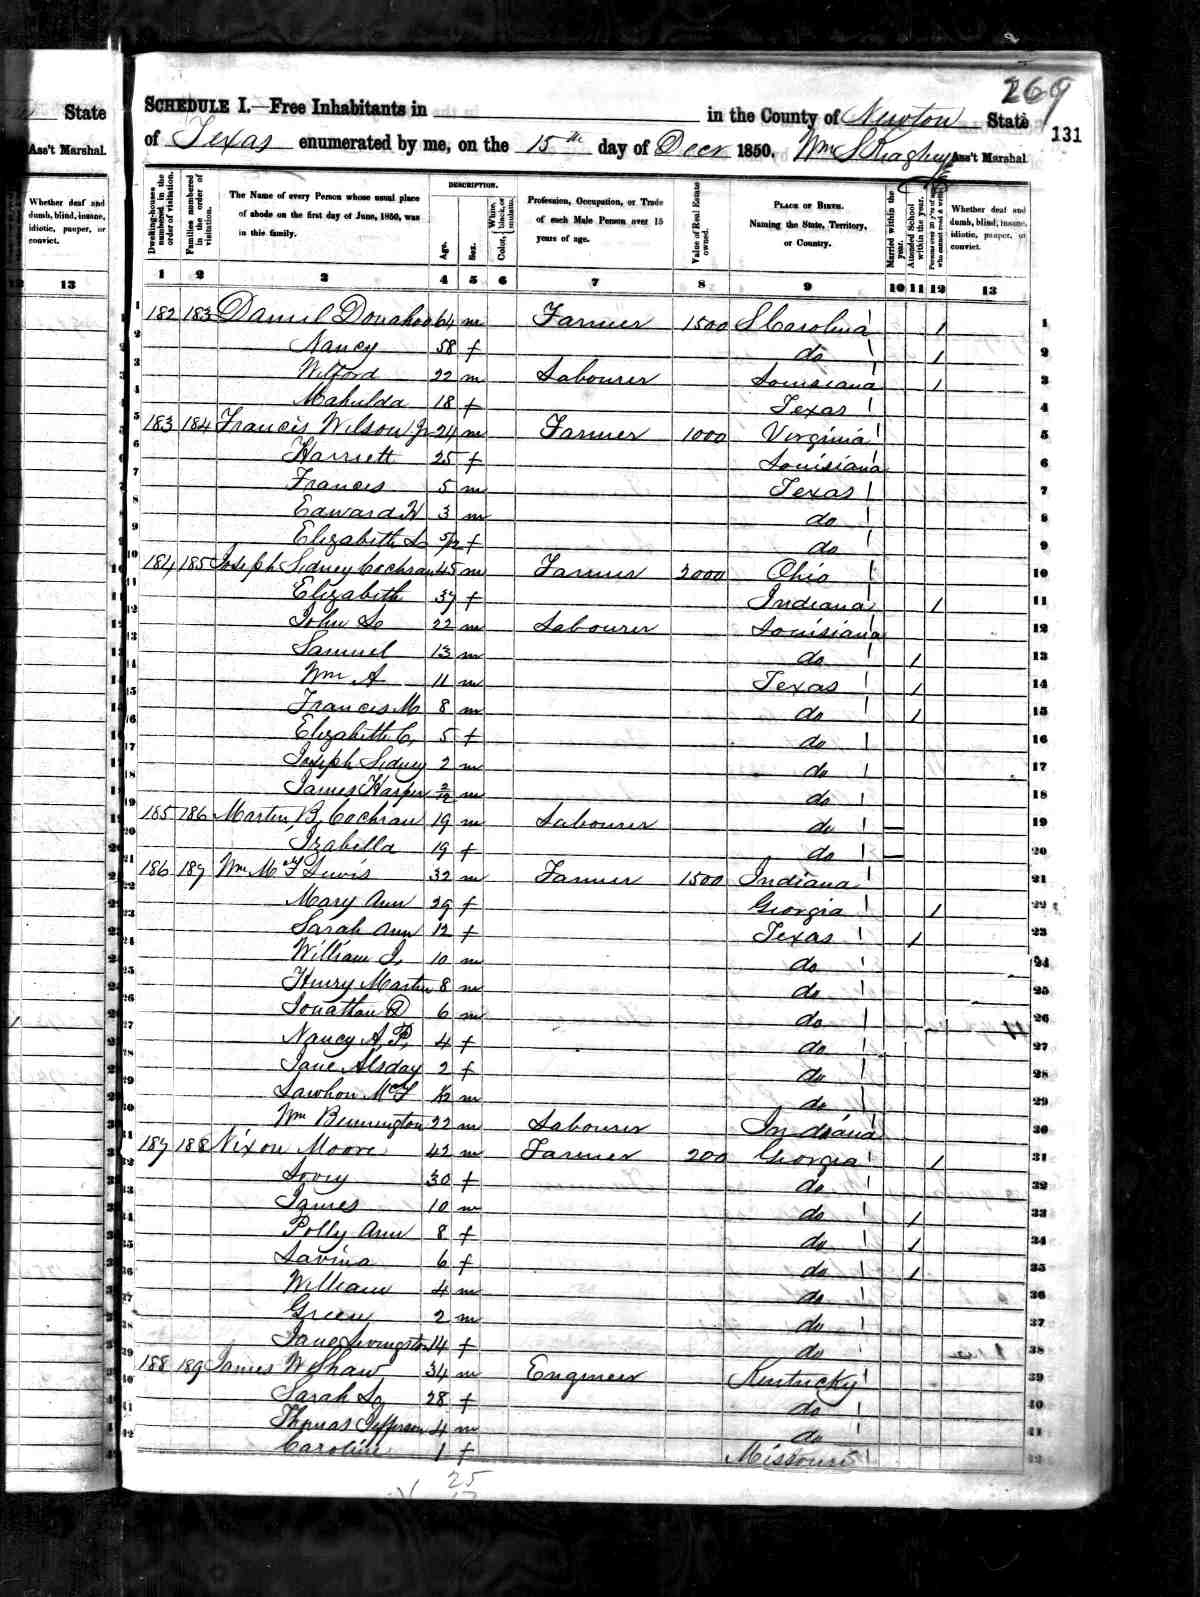 269
131
State
Ass't Marshal.
Whether deaf and
dumb, blind, insane,
idiotic, pauper, or
convict.
13
SCHEDULE I.—Free Inhabitants in in the County of Newton State
of Texas enumerated by me, on the 15th day of Decr 1850. Wm Ass't Marshal
DESCRIPTION.
Dwelling-houses numbered in the order of visitation.
Families numbered in the order of visitation.
The Name of every Person whose usual place of abode on the first day of June, 1850, was in this family.
Age.
Sex.
Color, White, black, or mulatto.
Profession, Occupation, or Trade of each Male Person over 15 years of age.
Value of Real Estate owned.
PLACE OF BIRTH. Naming the State, Territory, or Country.
Married within the year.
Attended School within the year.
Persons over 20 y'rs of age who cannot read & write.
Whether deaf and dumb, blind, insane, idiotic, pauper, or convict.
1 2 3 4 5 6 7 8 9 10 11 12 13
1 182 183 Daniel Donahoo 64 m Farmer 1500 S Carolina / 1
2 Nancy 58 f do / 2
3 Wilford 22 m Labourer Louisiana / 3
4 Mahulda 18 f Texas 4
5 183 184 Francis Wilson Jr 24 m Farmer 1000 Virginia 5
6 Harriett 25 f Louisiana 6
7 Frances 5 m Texas 7
8 Edward H 3 m do 8
9 Elizabeth L 5/12 f do 9
10 184 185 Joseph Sidney Cochran 45 m Farmer 2000 Ohio 10
11 Elizabeth 37 f Indiana / 11
12 John S 22 m Labourer Louisiana 12
13 Samuel 13 m do / 13
14 Wm A 11 m Texas / 14
15 Francis M 8 m do / 15
16 Elizabeth C, 5 f do 16
17 Joseph Sidney 2 m do 17
18 James Harper 2/12 m do 18
19 185 186 Martin B, Cochran 19 m Labourer do — 19
20 Izabella 19 f do — 20
21 186 187 Wm McF Lewis 32 m Farmer 1500 Indiana 21
22 Mary Ann 29 f Georgia / 22
23 Sarah Ann 12 f Texas / 23
24 William J, 10 m do 24
25 Henry Martin 8 m do 25
26 Jonathan D 6 m do 26
27 Nancy A, P, 4 f do 27
28 Jane Alsday 2 f do 28
29 Lawhon McF m do 29
30 Wm Bennington 22 m Labourer Indiana 30
31 187 188 Nixon Moore 42 m Farmer 200 Georgia / 31
32 Lovey 30 f do 32
33 James 10 m do / 33
34 Polly Ann 8 f do / 34
35 Lavina 6 f do / 35
36 William 4 m do 36
37 Green 2 m do 37
38 Jane Livingston 14 f do 38
39 188 189 James W Shaw 34 m Engineer Kentucky 39
40 Sarah L 28 f do 40
41 Thomas Jefferson 4 m do 41
42 Caroline 1 f Missouri 42
25